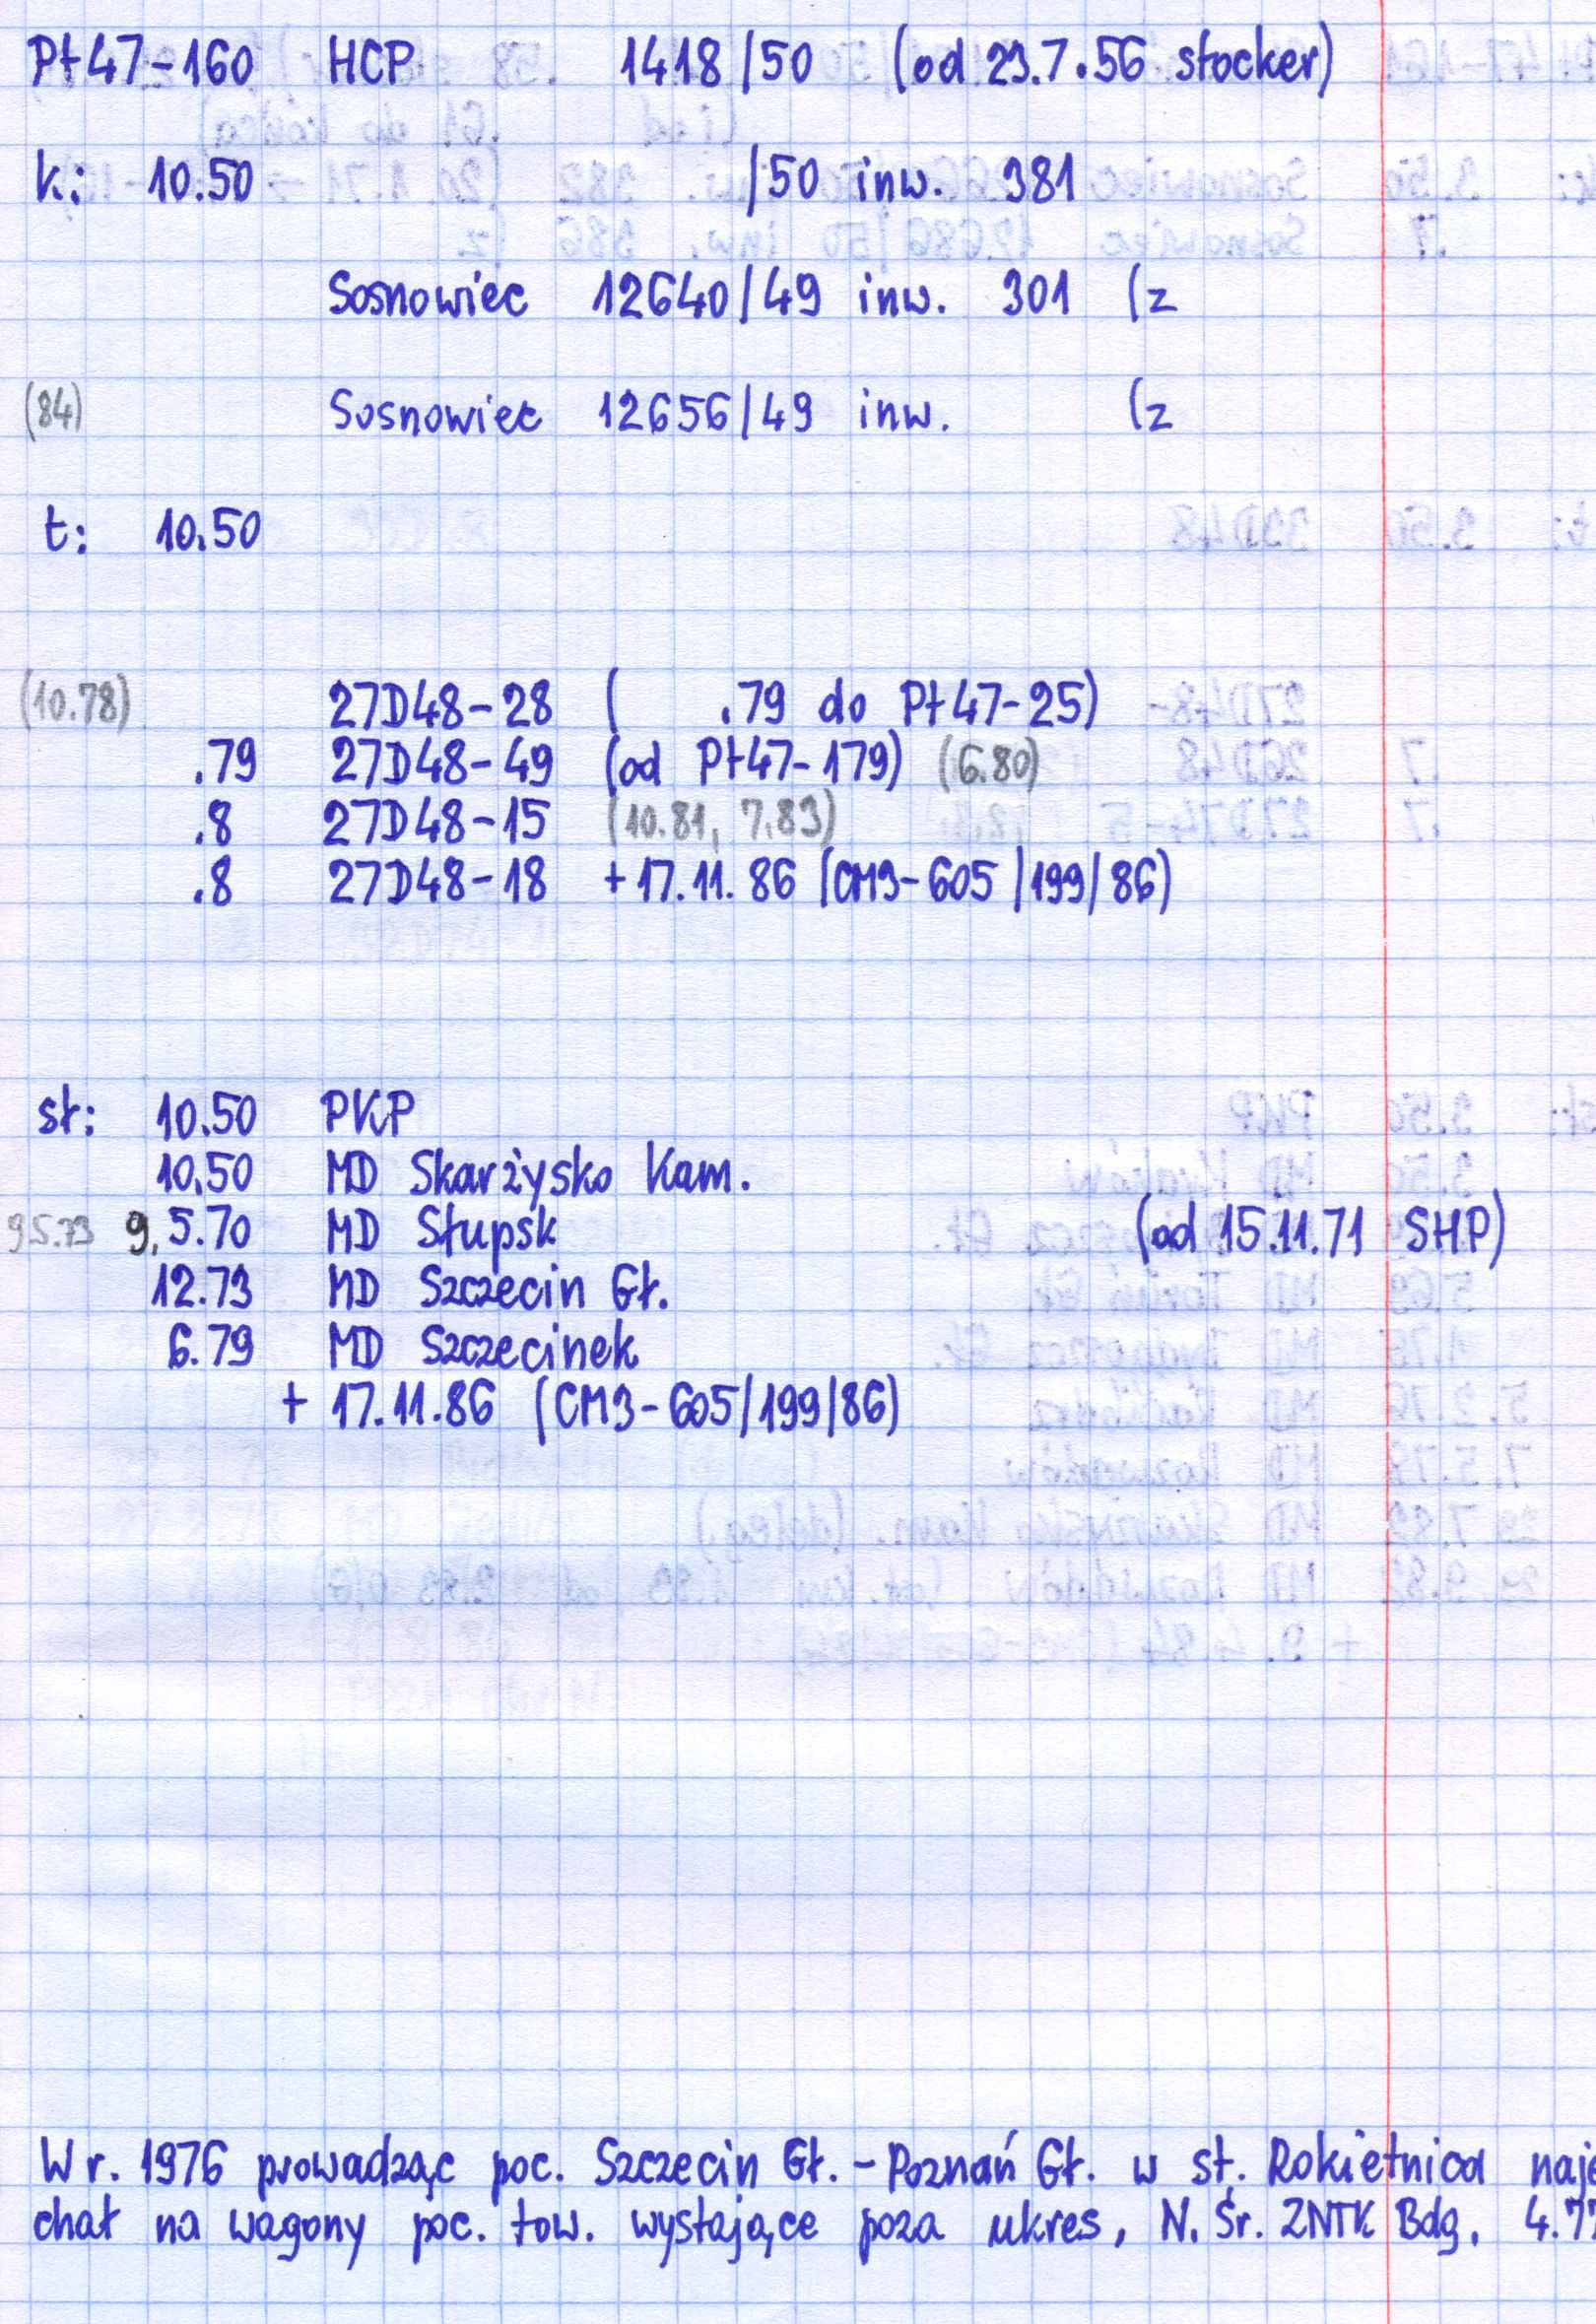 Pt47-160 HCP 1418/50 (od 23.7.56 stocker)
k: 10.50 /50 inw. 381
Sosnowiec 12640/49 inw. 301 (z
(84) Sosnowiec 12656/49 inw. (z
t: 10.50
(10.78) 27D48-28 ( .79 do Pt47-25)
.79 27D48-49 (od Pt47-179) (6.80)
.8 27D48-15 (10.81, 7.83)
.8 27D48-18 +17.11.86 (CM3-605/199/86)
st: 10.50 PKP
10.50 MD Skarżysko Kam.
9.5.73 9.5.70 MD Słupsk (od 15.11.71 SHP)
12.73 MD Szczecin Gł.
6.79 MD Szczecinek
+ 17.11.86 (CM3-605/199/86)
W r. 1976 prowadząc poc. Szczecin Gł. - Poznań Gł. w st. Rokietnica naje
chał na wagony poc. tow. wystające poza ukres, N. Śr. ZNTK Bdg. 4.77